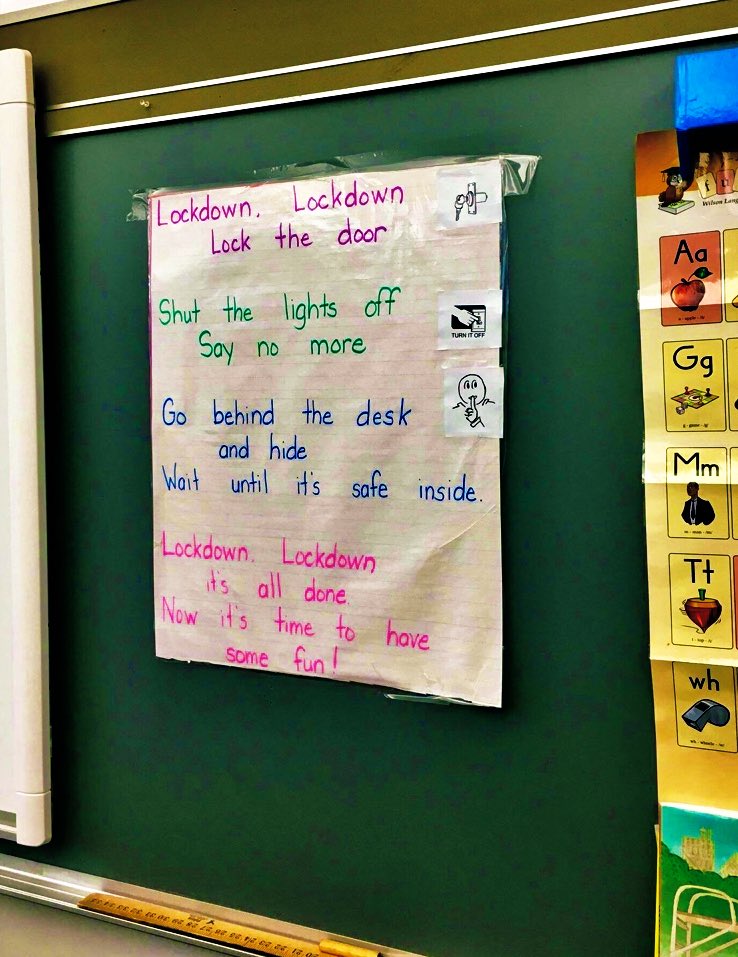 Lockdown, Lockdown
Lock the door
Shut the lights off
Say no more
TURN IT OFF
Go behind the desk
and hide
Wait until it's safe inside.
Lockdown. Lockdown
it's all done.
Now it's time to have
some fun!
Wilson Lang
Aa
a - apple - /ă/
Gg
g - game - /g/
Mm
m - man - /m/
Tt
t - top - /t/
wh
wh - whistle - /w/